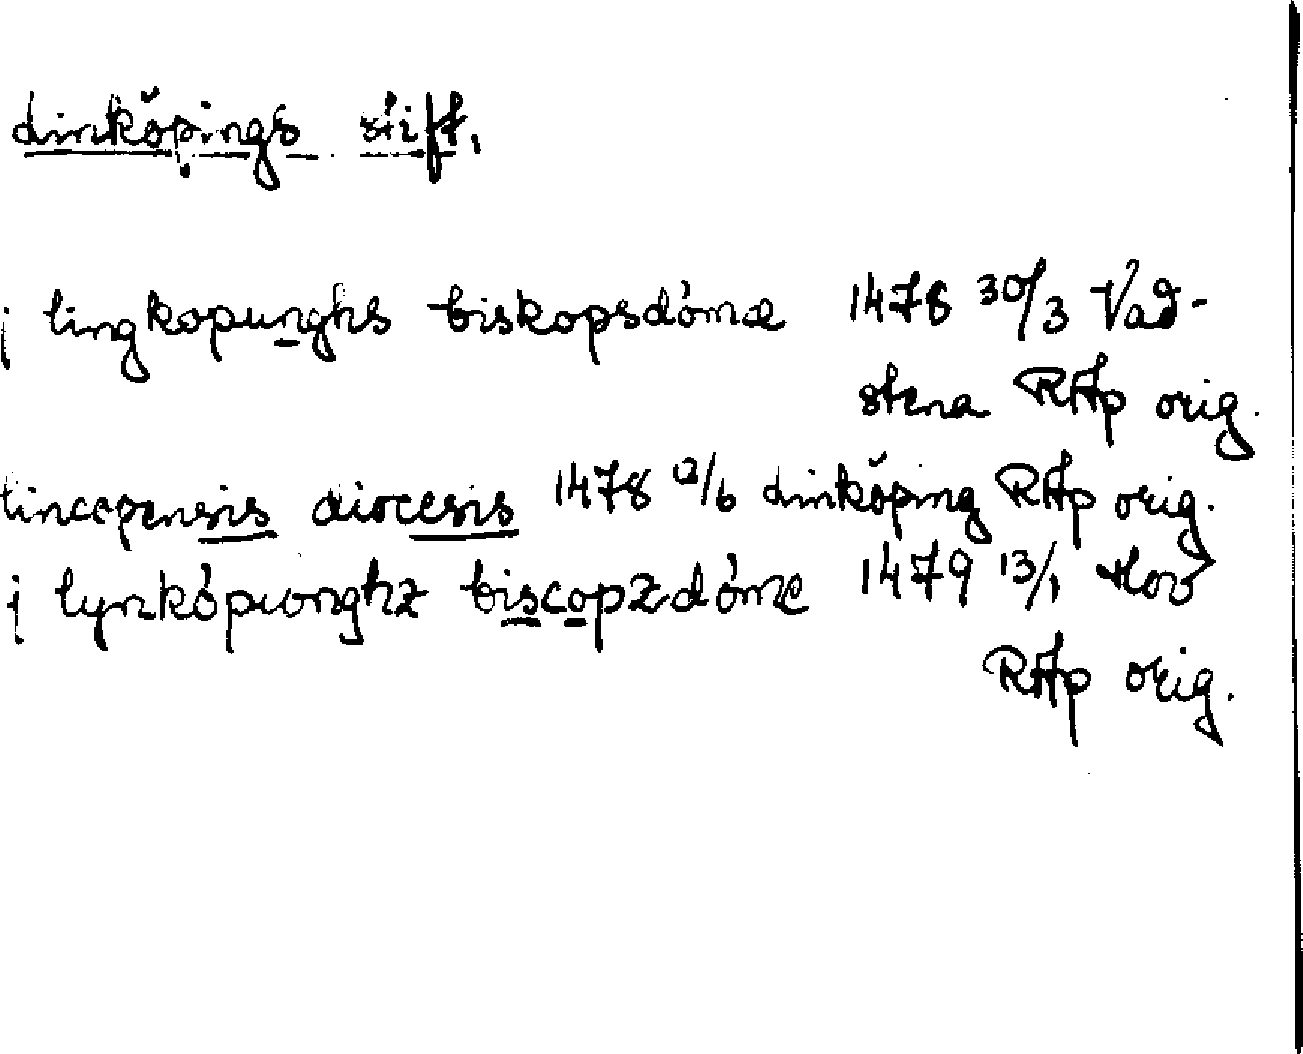 Linköpings stift.
j lingkopunghs biskopsdómæ 1478 30/3 Vad-
stena RAp orig.
lincopensis diocesis 1478 12/6 Linköping RAp orig.
j lynkópwnghz biscopzdóme 1479 13/1 Hov
RAp orig.